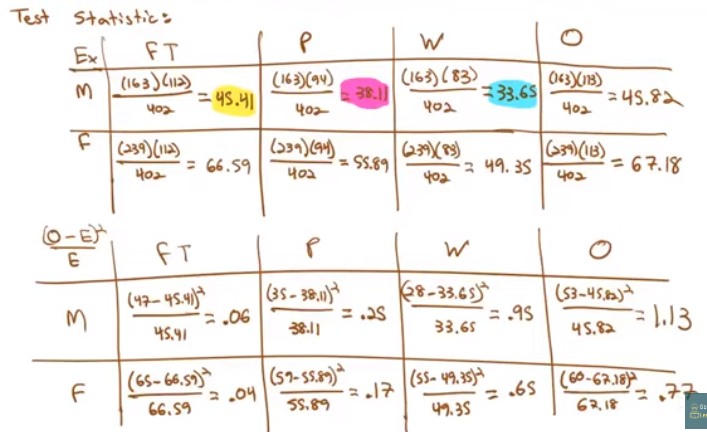 Test Statistic:
Ex FT P W O
M (163)(112)/402 = 45.41 (163)(94)/402 = 38.11 (163)(83)/402 = 33.65 (163)(113)/402 = 45.82
F (239)(112)/402 = 66.59 (239)(94)/402 = 55.89 (239)(83)/402 = 49.35 (239)(113)/402 = 67.18
(O-E)²/E FT P W O
M (47-45.41)²/45.41 = .06 (35-38.11)²/38.11 = .25 (28-33.65)²/33.65 = .95 (53-45.82)²/45.82 = 1.13
F (65-66.59)²/66.59 = .04 (59-55.89)²/55.89 = .17 (55-49.35)²/49.35 = .65 (60-67.18)²/67.18 = .77